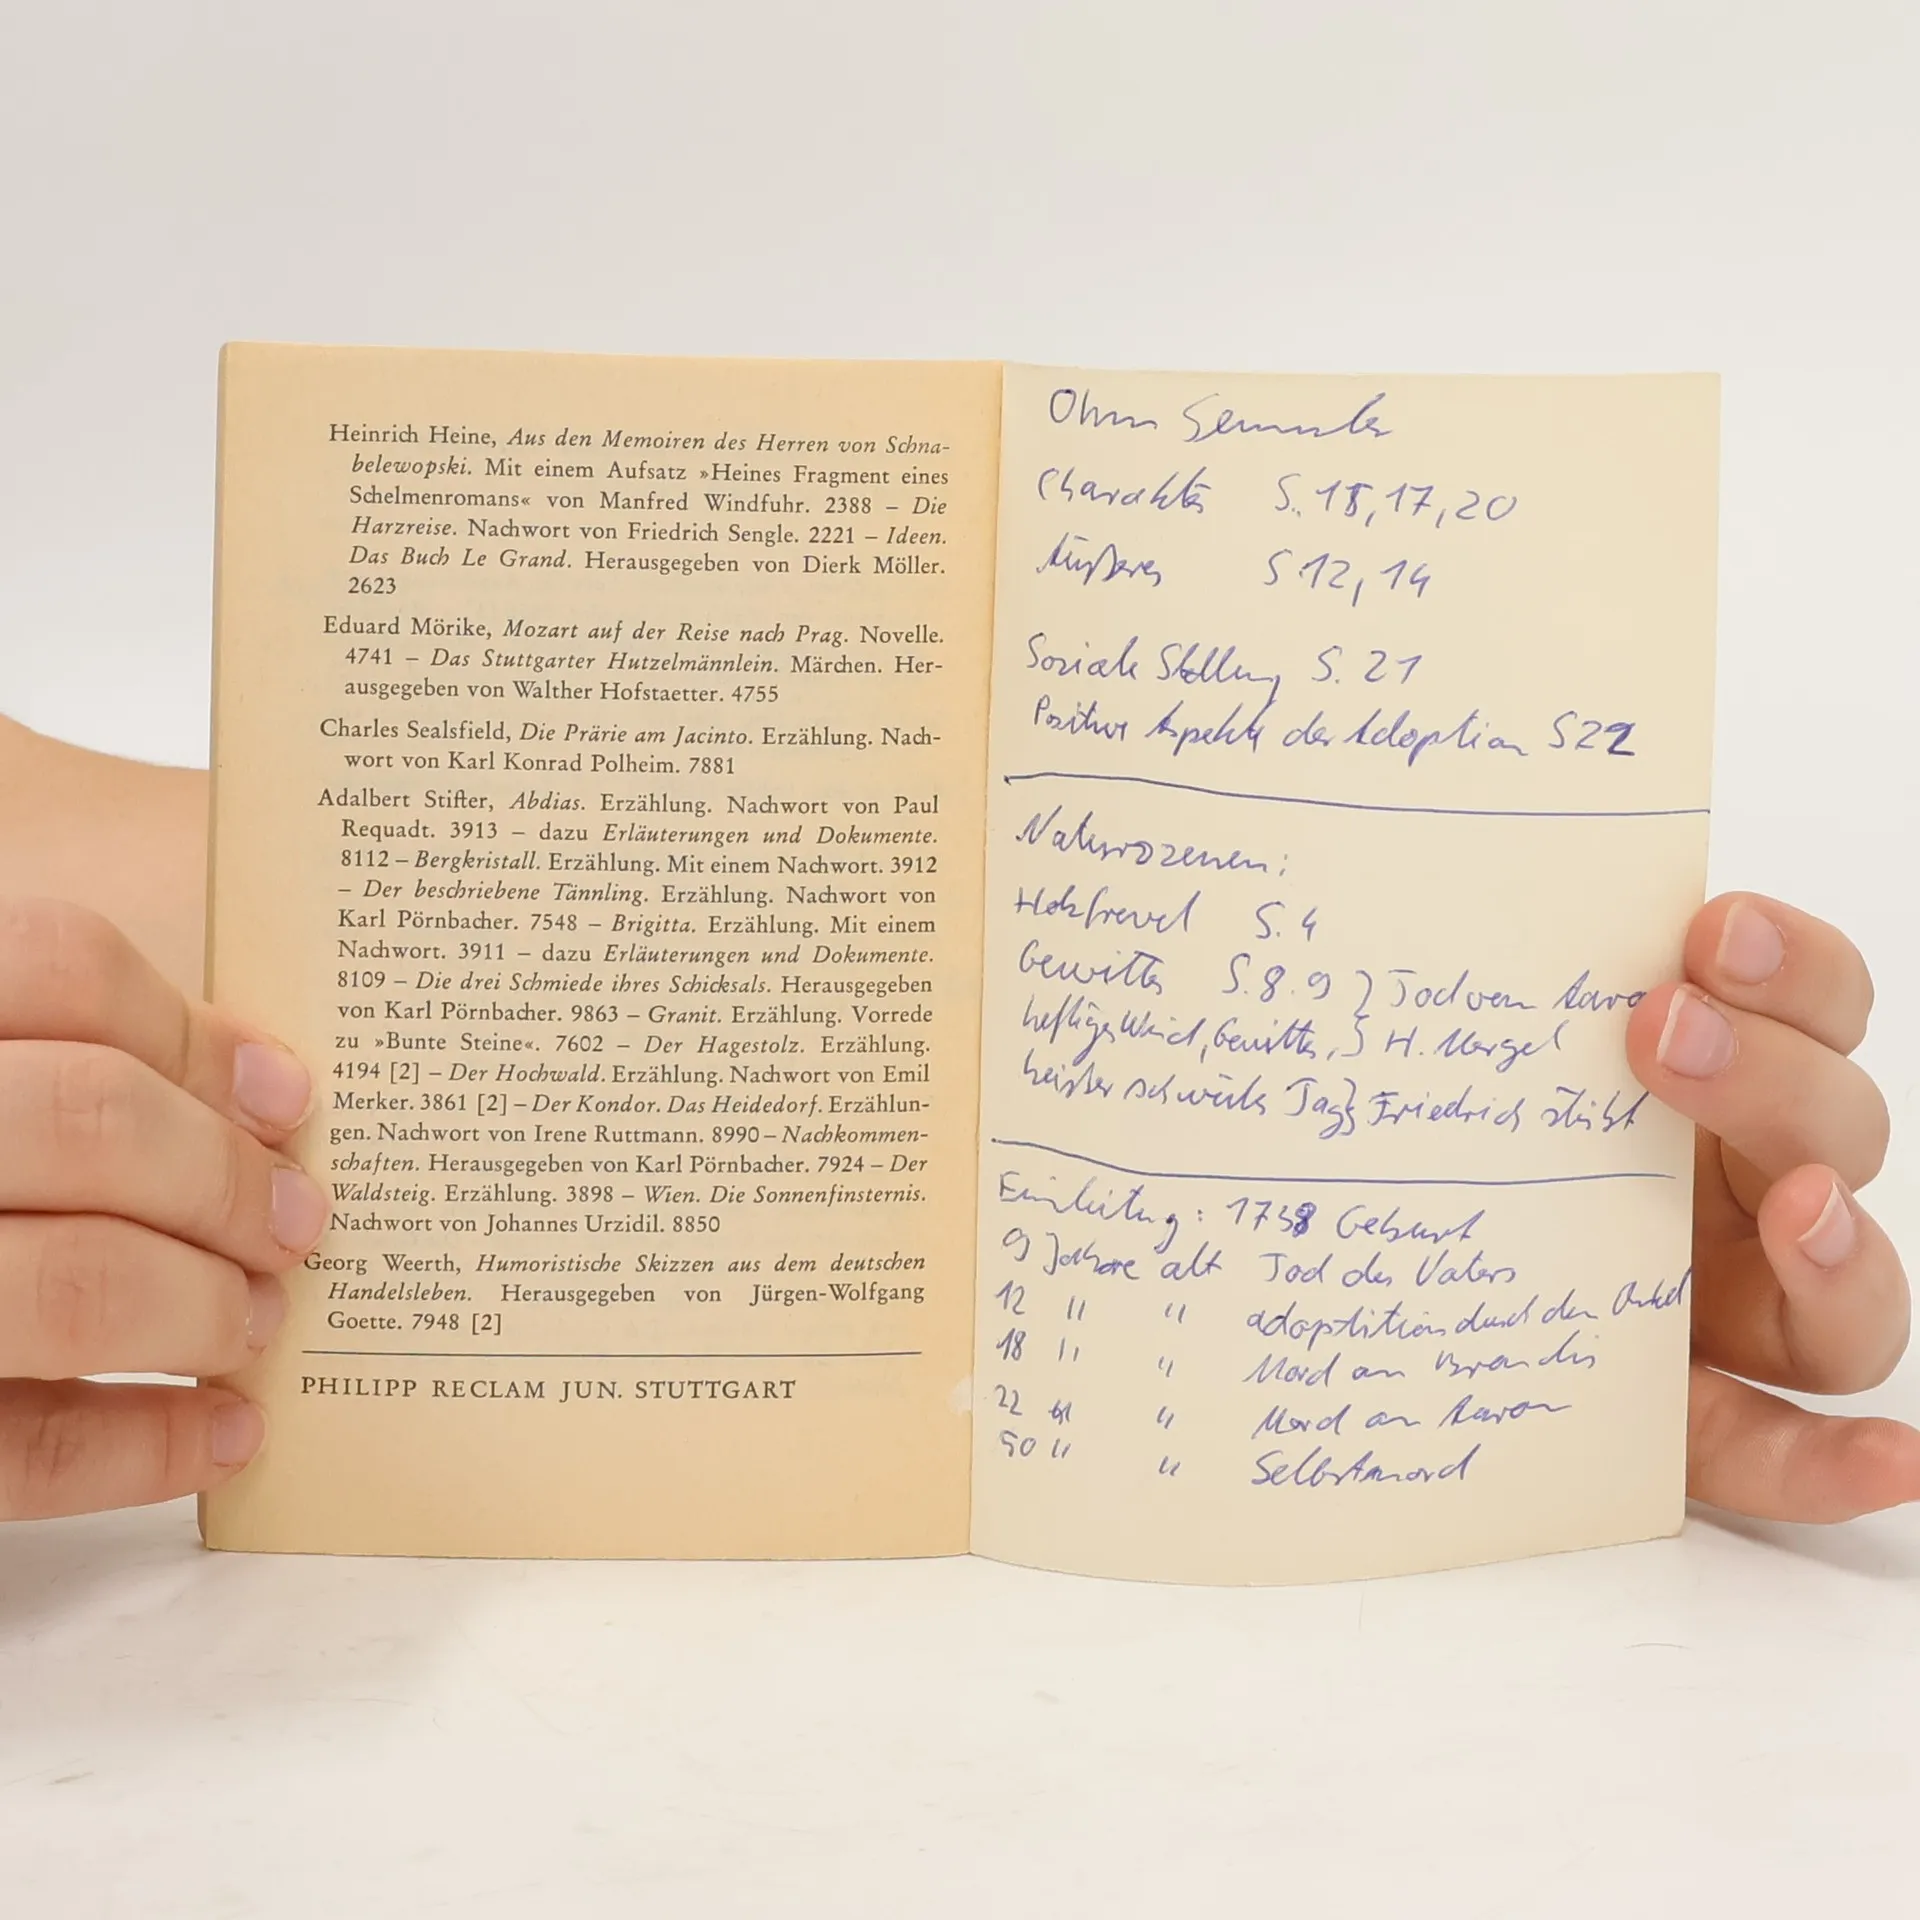 Heinrich Heine, Aus den Memoiren des Herren von Schna-
belewopski. Mit einem Aufsatz »Heines Fragment eines
Schelmenromans« von Manfred Windfuhr. 2388 – Die
Harzreise. Nachwort von Friedrich Sengle. 2221 – Ideen.
Das Buch Le Grand. Herausgegeben von Dierk Möller.
2623
Eduard Mörike, Mozart auf der Reise nach Prag. Novelle.
4741 – Das Stuttgarter Hutzelmännlein. Märchen. Her-
ausgegeben von Walther Hofstaetter. 4755
Charles Sealsfield, Die Prärie am Jacinto. Erzählung. Nach-
wort von Karl Konrad Polheim. 7881
Adalbert Stifter, Abdias. Erzählung. Nachwort von Paul
Requadt. 3913 – dazu Erläuterungen und Dokumente.
8112 – Bergkristall. Erzählung. Mit einem Nachwort. 3912
– Der beschriebene Tännling. Erzählung. Nachwort von
Karl Pörnbacher. 7548 – Brigitta. Erzählung. Mit einem
Nachwort. 3911 – dazu Erläuterungen und Dokumente.
8109 – Die drei Schmiede ihres Schicksals. Herausgegeben
von Karl Pörnbacher. 9863 – Granit. Erzählung. Vorrede
zu »Bunte Steine«. 7602 – Der Hagestolz. Erzählung.
4194 [2] – Der Hochwald. Erzählung. Nachwort von Emil
Merker. 3861 [2] – Der Kondor. Das Heidedorf. Erzählun-
gen. Nachwort von Irene Ruttmann. 8990 – Nachkommen-
schaften. Herausgegeben von Karl Pörnbacher. 7924 – Der
Waldsteig. Erzählung. 3898 – Wien. Die Sonnenfinsternis.
Nachwort von Johannes Urzidil. 8850
Georg Weerth, Humoristische Skizzen aus dem deutschen
Handelsleben. Herausgegeben von Jürgen-Wolfgang
Goette. 7948 [2]
PHILIPP RECLAM JUN. STUTTGART
Ohm Semmler
Charakter S. 15, 17, 20
Äußeres S. 12, 14
Soziale Stellung S. 21
Positive Aspekte der Adoption S 22
Holzfrevel S. 4
Gewitter S. 8. 9 } Tod von
heftiger Wind, Gewitter, } H. Mergel
heißer schwüler Tag } Friedrich stirbt
Einleitung: 1738 Geburt
9 Jahre alt Tod des Vaters
12 " " adoptition durch den Onkel
18 " " Mord an Brandis
22 " " Mord an Aaron
50 " " Selbstmord